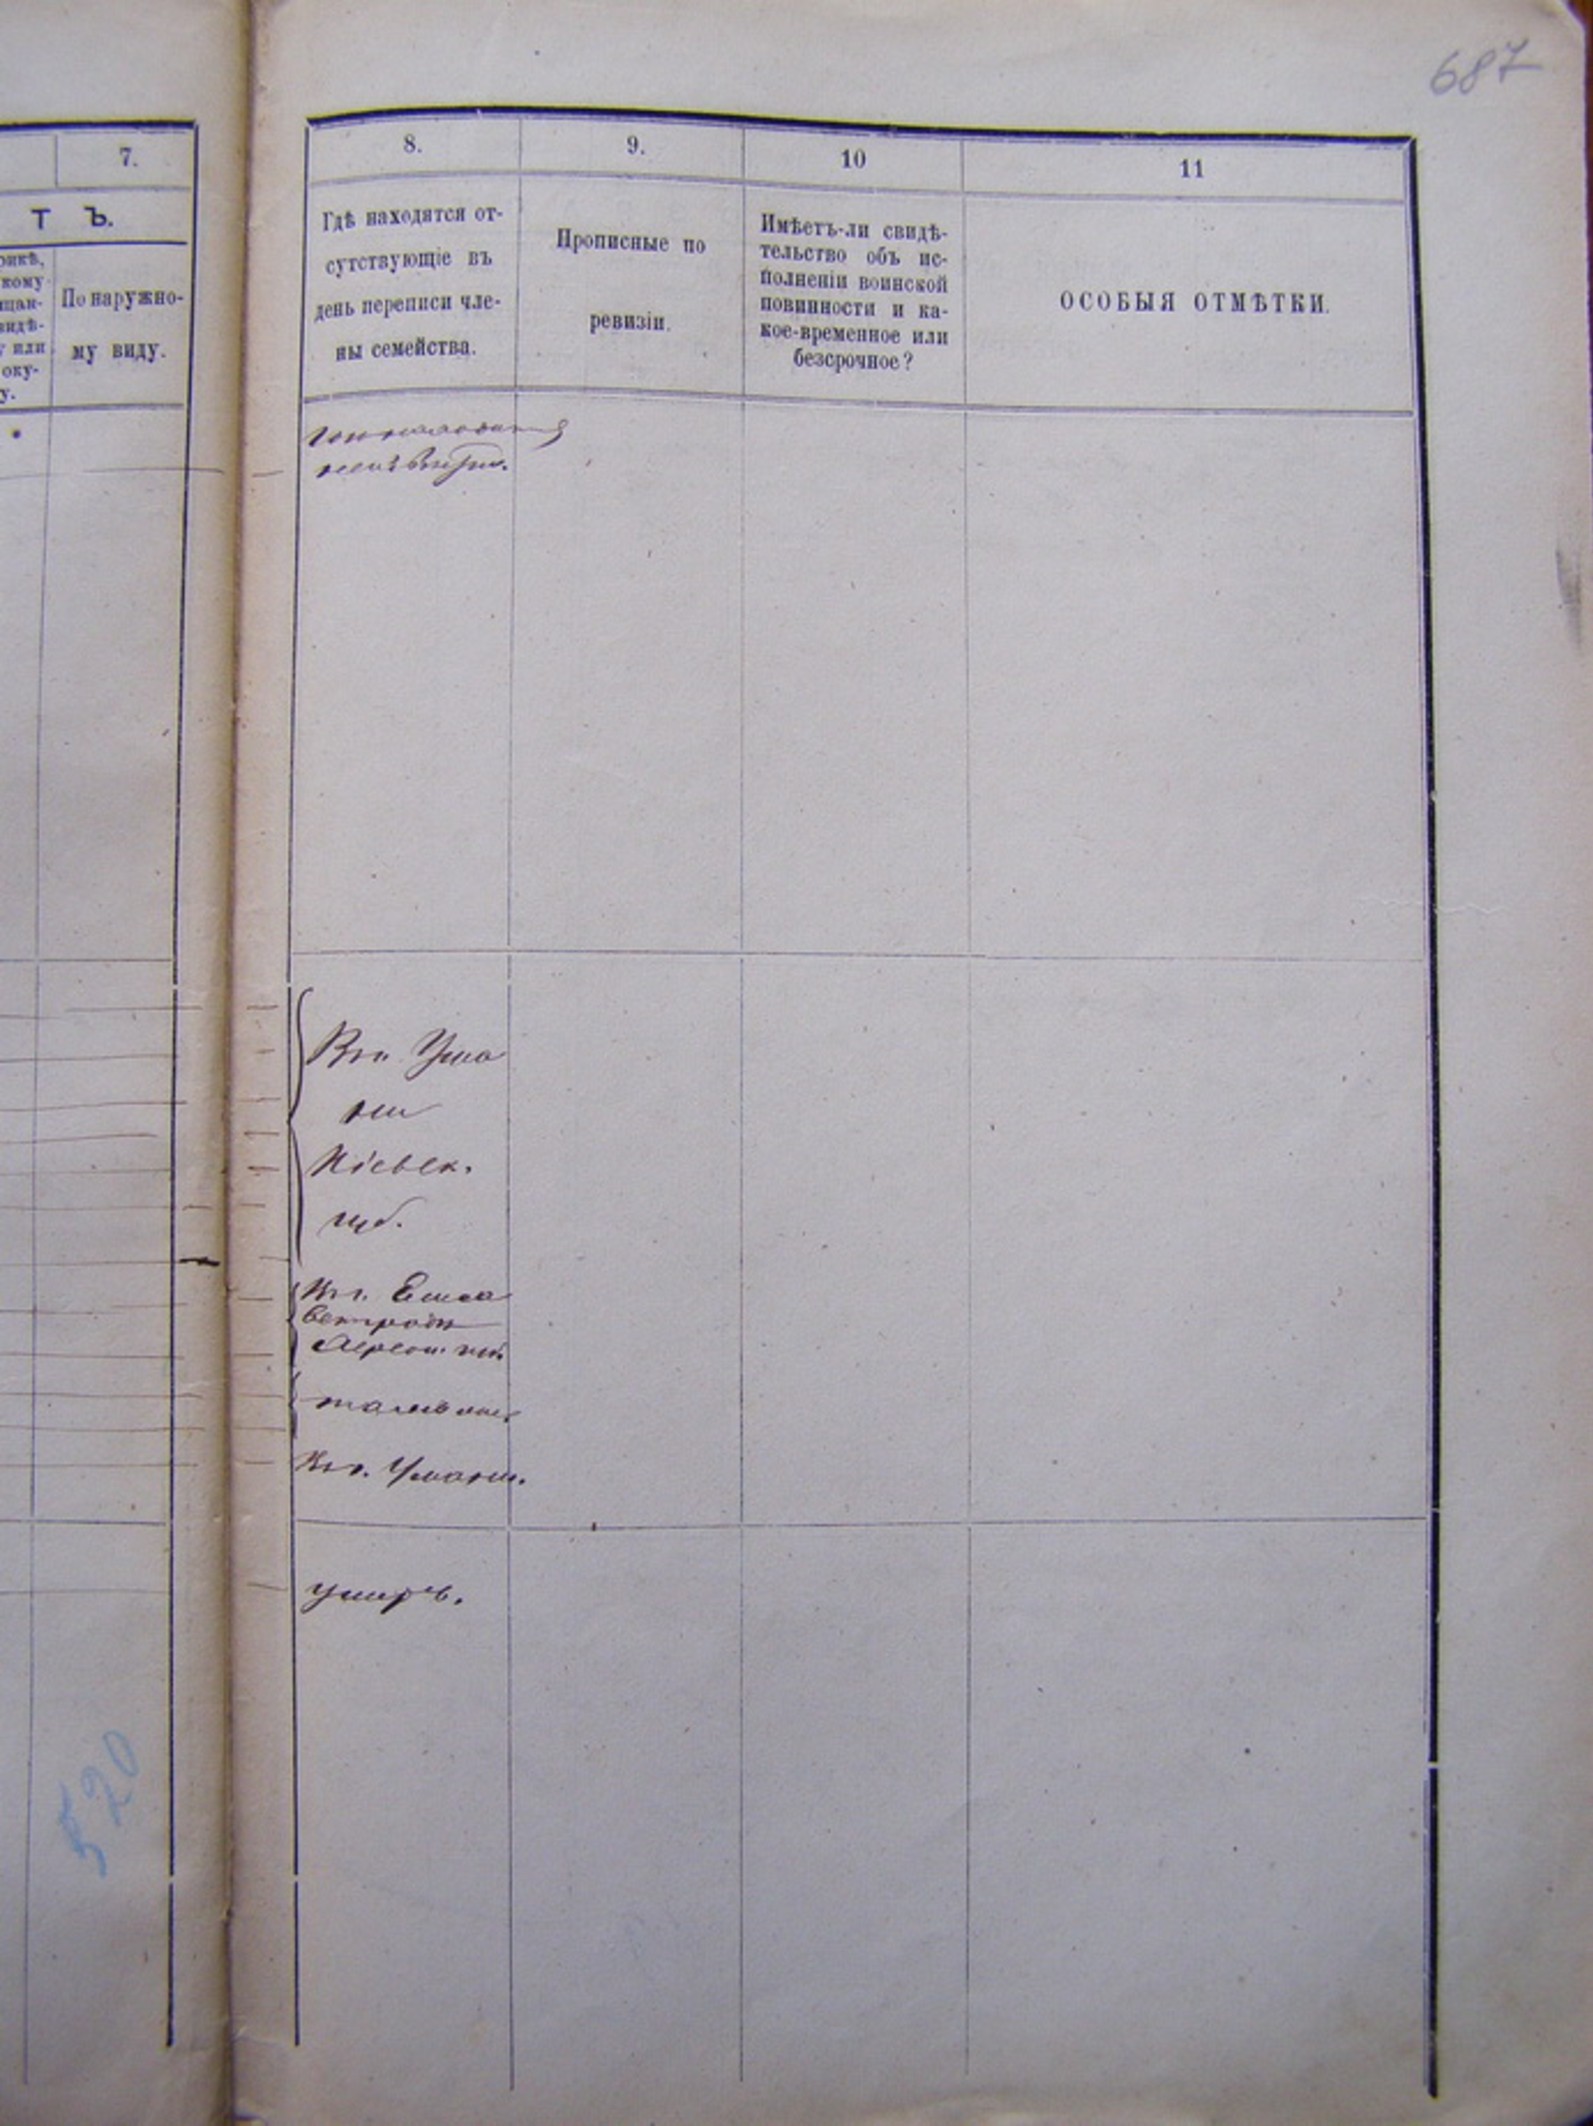 687
7.
Т Ъ.
рикѣ,
кому
щан-
видѣ-
у или
оку-
у.
По наружно-
му виду.
8.
Гдѣ находятся от-
сутствующіе въ
день переписи чле-
ны семейства.
9.
Прописные по
ревизіи.
10
Имѣетъ-ли свидѣ-
тельство объ ис-
полненіи воинской
повинности и ка-
кое-временное или
безсрочное?
11
ОСОБЫЯ ОТМѢТКИ.
неизвѣстно.
Въ г. Ума
ни
Кіевск.
губ.
Въ г. Елиса
ветградѣ
Херсон. губ.
тамъ же.
Въ г. Умани.
умеръ.
520